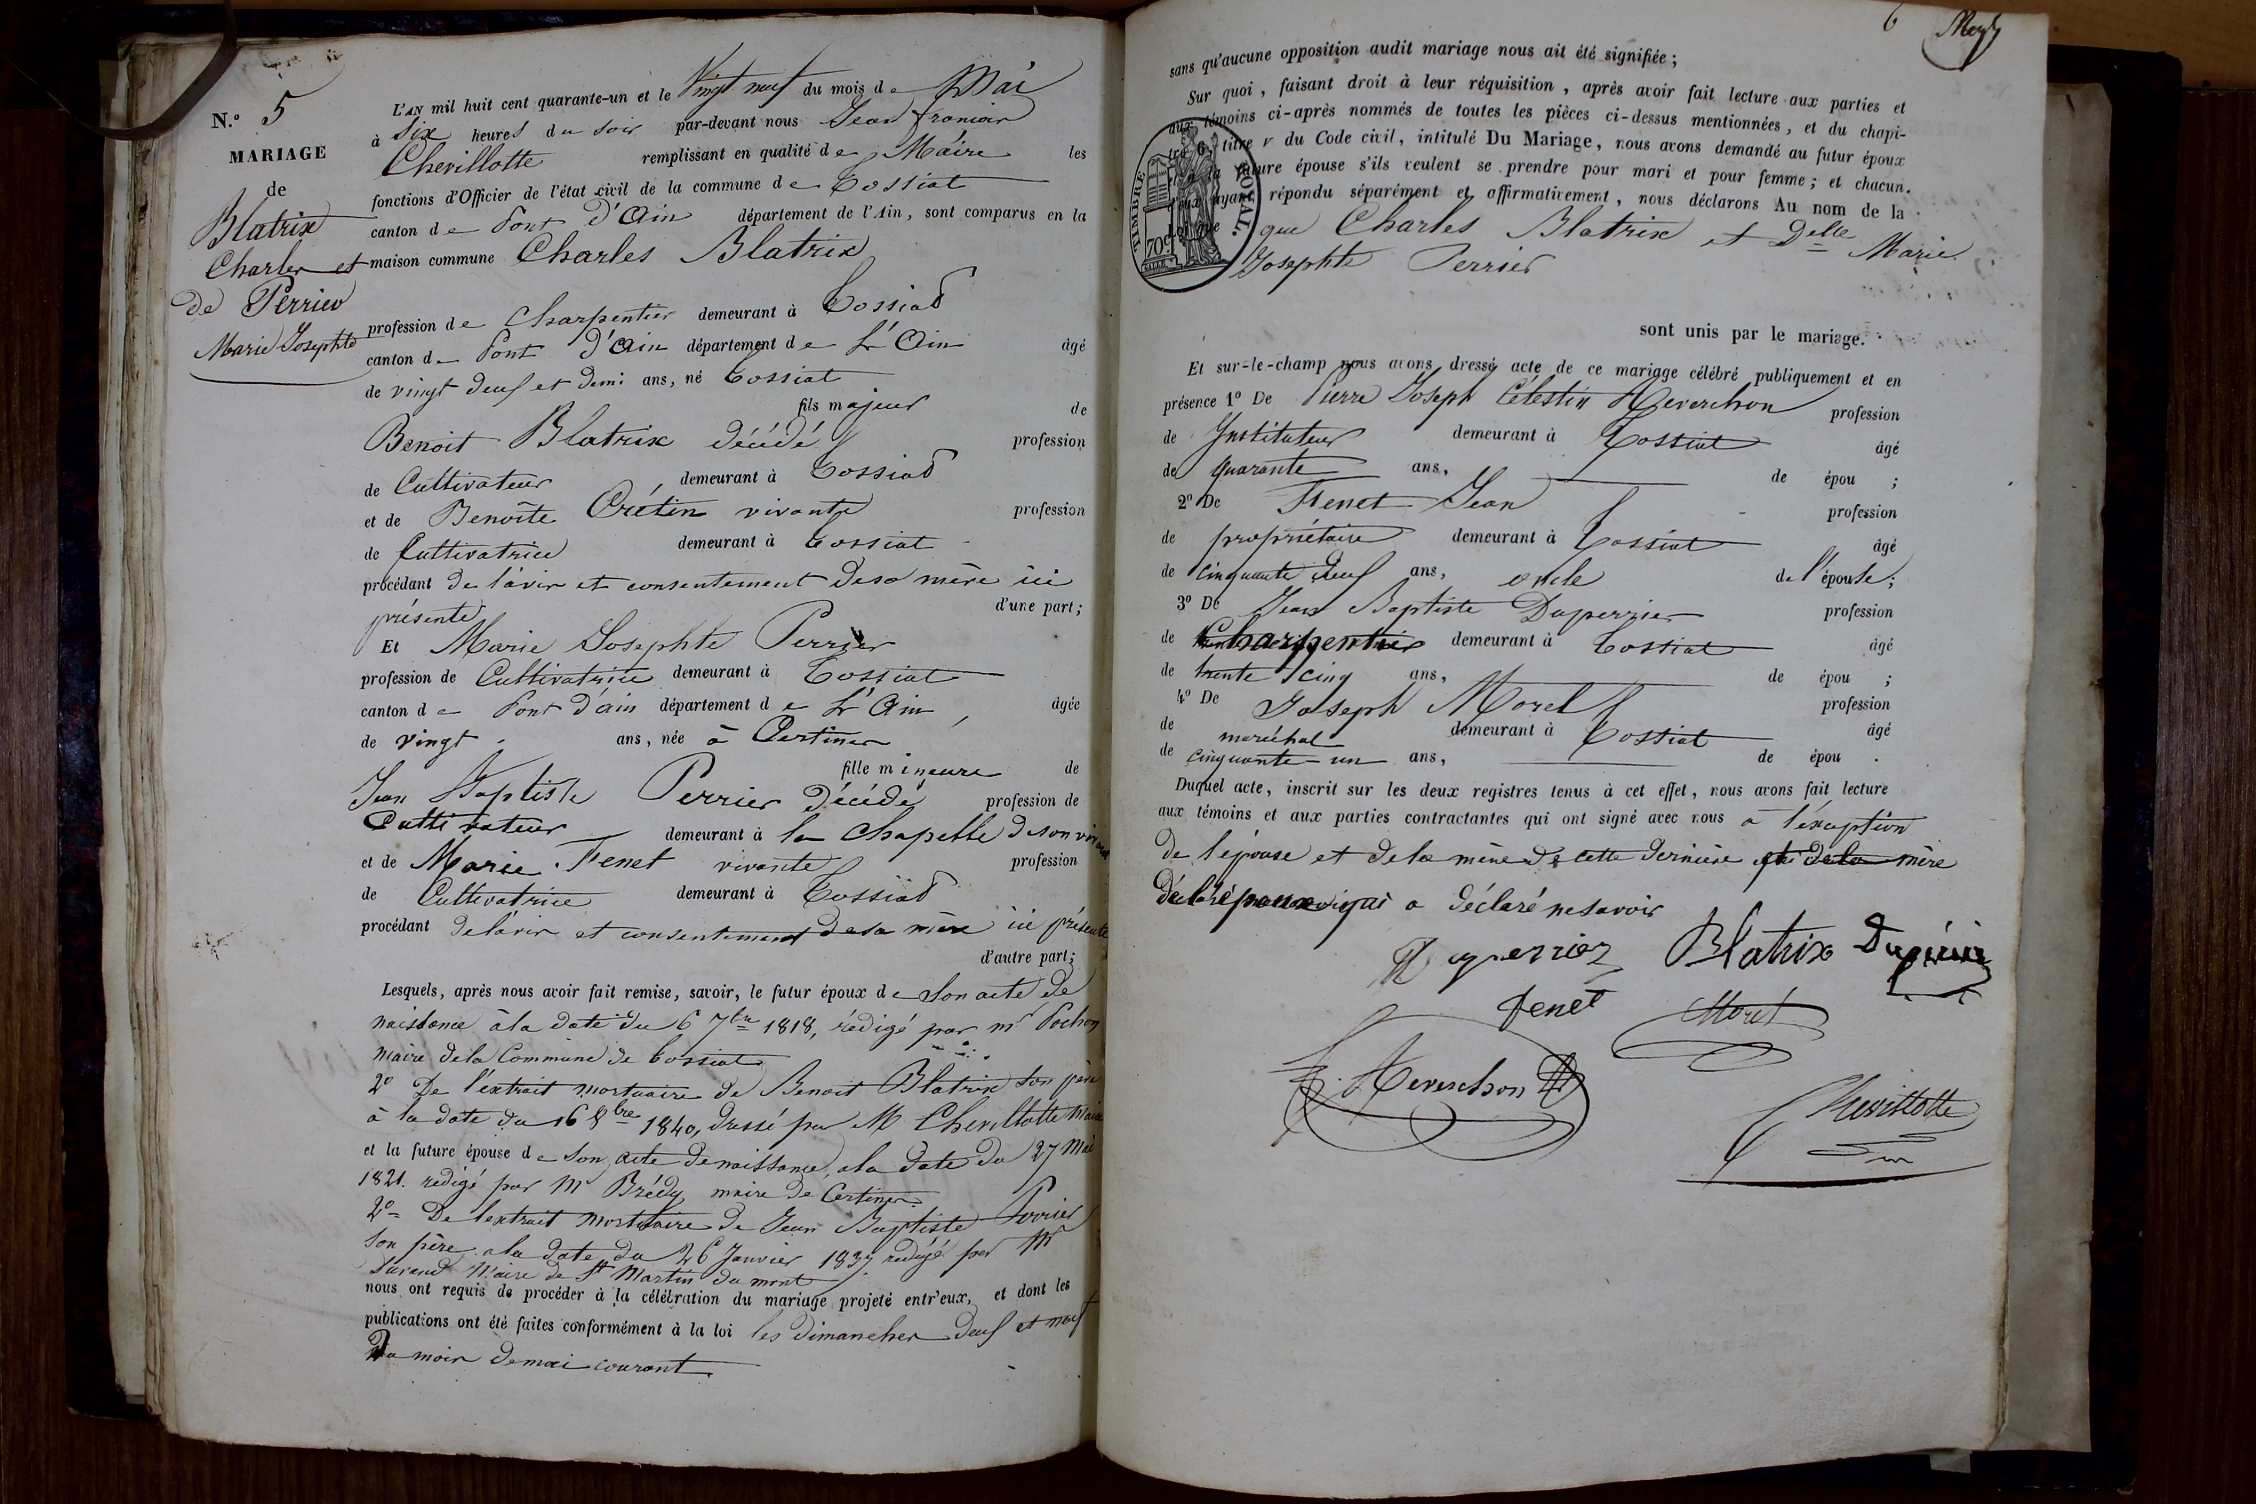 N.º 5
MARIAGE
de
Blatrix
Charles et
de Perrier
Marie Josephte
L'AN mil huit cent quarante-un et le Vingt neuf du mois de Mai
à Six heures du soir par-devant nous Jean françois
Chevillotte remplissant en qualité de Maire les
fonctions d'Officier de l'état civil de la commune de Tossiat
canton de Pont d'Ain département de l'Ain, sont comparus en la
maison commune Charles Blatrix
profession de Charpentier demeurant à Tossiat
canton de Pont d'Ain département de L'Ain âgé
de vingt deux et demi ans, né Tossiat
fils majeur de
Benoit Blatrix décédé profession
de Cultivateur demeurant à Tossiat
et de Benoîte Crétin vivante profession
de Cultivatrice demeurant à Tossiat
procédant de l'avis et consentement de sa mère ici
présente d'une part;
Et Marie Josephte Perrier
profession de Cultivatrice demeurant à Tossiat
canton de Pont d'ain département de L'Ain âgée
de vingt ans, née à Certines
fille mineure de
Jean Baptiste Perrier décédé profession de
Cultivateur demeurant à la Chapelle de son vivant
et de Marie Fenet vivante profession
de Cultivatrice demeurant à Tossiat
procédant de l'avis et consentement de sa mère ici présente
d'autre part;
Lesquels, après nous avoir fait remise, savoir, le futur époux de Son acte de
naissance à la date du 6 7bre 1818, rédigé par mr Pochon
maire de la Commune de Tossiat
2º De l'extrait mortuaire de Benoit Blatrix son père
à la date du 16 8bre 1840, dressé par M Chevillotte Maire
et la future épouse de Son acte de naissance, a la date du 27 Mai
1821. rédigé par Mr Brédy maire de Certines
2º De l'extrait mortuaire de Jean Baptiste Perrier
son père a la date du 26 Janvier 1837 redigé par Mr
Durand Maire de St Martin du mont
nous ont requis de procéder à la célébration du mariage projeté entr'eux, et dont les
publications ont été faites conformément à la loi les Dimanches deux et neuf
Du mois de mai courant
6
sans qu'aucune opposition audit mariage nous ait été signifiée;
Sur quoi, faisant droit à leur réquisition, après avoir fait lecture aux parties et
aux témoins ci-après nommés de toutes les pièces ci-dessus mentionnées, et du chapi-
tre 6, titre v du Code civil, intitulé Du Mariage, nous avons demandé au futur époux
et à la future épouse s'ils veulent se prendre pour mari et pour femme; et chacun.
d'eux ayant répondu séparément et affirmativement, nous déclarons Au nom de la
Loi que que Charles Blatrix et Delle Marie
Josephte Perrier
TIMBRE ROYAL.
70c
sont unis par le mariage.
Et sur-le-champ nous avons dressé acte de ce mariage célébré publiquement et en
présence 1º De Pierre Joseph Célestin Reverchon profession
de Instituteur demeurant à Tossiat âgé
de quarante ans, de épou ;
2º De Fenet Jean profession
de propriétaire demeurant à Tossiat âgé
de cinquante deux ans, oncle de l'épouse;
3º De Jean Baptiste Duperrier profession
de Charpentier demeurant à Tossiat âgé
de trente cinq ans, de épou ;
4º De Joseph Morel profession
de maréchal demeurant à Tossiat âgé
de cinquante-un ans, de épou .
Duquel acte, inscrit sur les deux registres tenus à cet effet, nous avons fait lecture
aux témoins et aux parties contractantes qui ont signé avec nous à l'exception
de l'épouse et de la mère de cette dernière et de la mère
qui a déclaré ne savoir
Duperrier Blatrix
Fenet Morel
Reverchon
Chevillotte